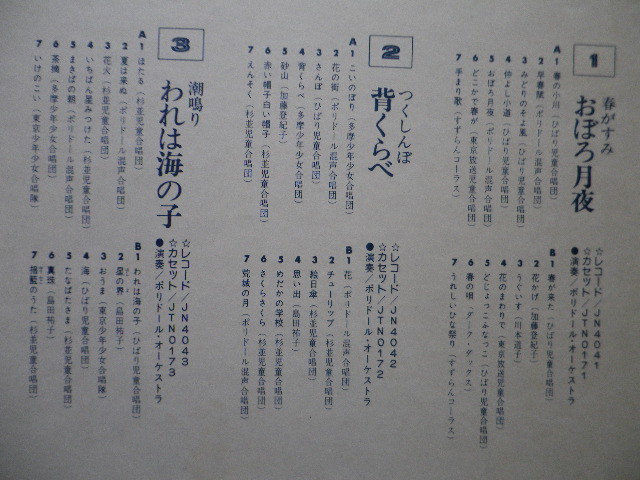 1
春がすみ
おぼろ月夜
☆レコード/JN4041
☆カセット/JTN0171
●演奏/ポリドール・オーケストラ
A1 春の小川（ひばり児童合唱団）
2 早春賦（ポリドール混声合唱団）
3 みどりのそよ風（ひばり児童合唱団）
4 仲よし小道（ひばり児童合唱団）
5 おぼろ月夜（ポリドール混声合唱団）
6 どこかで春が（東京放送児童合唱団）
7 手まり歌（すずらんコーラス）
B1 春が来た（ひばり児童合唱団）
2 花かげ（加藤登紀子）
3 うぐいす（川本道子）
4 花のまわりで（東京放送児童合唱団）
5 どじょっこふなっこ（ひばり児童合唱団）
6 春の唄（ダーク・ダックス）
7 うれしいひな祭り（すずらんコーラス）
2
つくしんぼ
背くらべ
☆レコード/JN4042
☆カセット/JTN0172
●演奏/ポリドール・オーケストラ
A1 こいのぼり（多摩少年少女合唱団）
2 花の街（ポリドール混声合唱団）
3 さんぽ（ひばり児童合唱団）
4 背くらべ（多摩少年少女合唱団）
5 砂山（加藤登紀子）
6 赤い帽子白い帽子（杉並児童合唱団）
7 えんそく（杉並児童合唱団）
B1 花（ポリドール混声合唱団）
2 チューリップ（杉並児童合唱団）
3 絵日傘（杉並児童合唱団）
4 思い出（島田祐子）
5 めだかの学校（杉並児童合唱団）
6 さくらさくら（杉並児童合唱団）
7 荒城の月（ポリドール混声合唱団）
3
潮鳴り
われは海の子
☆レコード/JN4043
☆カセット/JTN0173
●演奏/ポリドール・オーケストラ
A1 ほたる（杉並児童合唱団）
2 夏は来ぬ（ポリドール混声合唱団）
3 花火（杉並児童合唱団）
4 いちばん星みつけた（杉並児童合唱団）
5 まきばの朝（ポリドール混声合唱団）
6 茶摘（多摩少年少女合唱団）
7 いけのこい（東京少年少女合唱隊）
B1 われは海の子（ひばり児童合唱団）
2 星の界（島田祐子）
3 おうま（東京少年少女合唱隊）
4 海（ひばり児童合唱団）
5 たなばたさま（杉並児童合唱団）
6 真珠（島田祐子）
7 揺籃のうた（杉並児童合唱団）